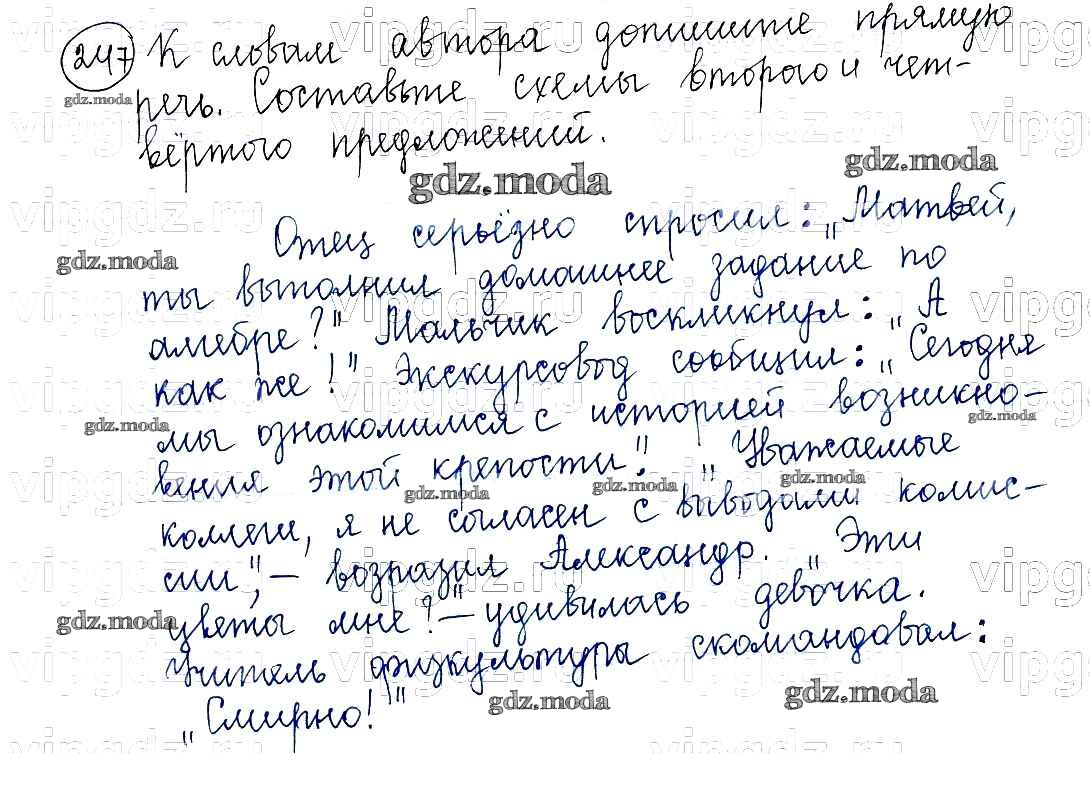 247 К словам автора допишите прямую
речь. Составьте схемы второго и чет-
вёртого предложений.
Отец серьёзно спросил: „Матвей,
ты выполнил домашнее задание по
алгебре?" Мальчик воскликнул: „А
как же!" Экскурсовод сообщил: „Сегодня
мы ознакомимся с историей возникно-
вения этой крепости". „Уважаемые
коллеги, я не согласен с выводами комис-
сии", – возразил Александр. „Эти
цветы мне?" – удивилась девочка.
Учитель физкультуры скомандовал:
„Смирно!"
gdz.moda
gdz.moda
gdz.moda
gdz.moda
gdz.moda
gdz.moda
gdz.moda
gdz.moda
gdz.moda
gdz.moda
gdz.moda
gdz.moda
vipgdz.ru